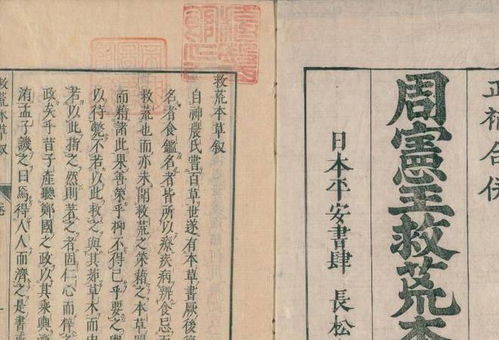 正補合併
周憲王救荒本
日本平安書肆 長松
救荒本草叙
自神農氏嘗百草世遂有本草書厥後
名者食鑑名者皆所以療疾病辨食忌而
救荒也而亦未聞救荒之策藉之本草
而藉諸此果善策乎抑不得已乎要之
以待斃不若以此救之與其茹草木而
若以此指之然則若之者固仁心而
政矣乎昔子產聽鄭國之政以其乘輿
洧孟子譏之曰焉得人人而濟之是書
救荒本草叙